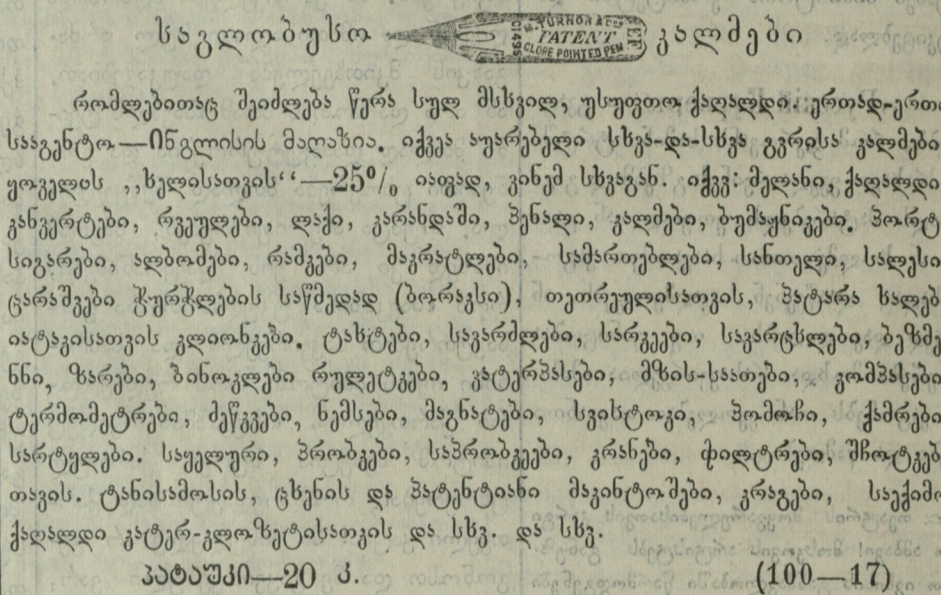 საგლობუსო H. TURNOR & Co PATENT CLOPE POINTED PEN EF კალმები
რომლებითაც შეიძლება წერა სულ მსხვილ, უსუფთო ქაღალდი. ერთად-ერთი
სააგენტო—ინგლისის მაღაზია. იქვეა აუარებელი სხვა-და-სხვა გვრისა კალმები
ყოველის ,,ხელისათვის“—25% იაფად, ვინემ სხვაგან. იქვე: მელანი, ქაღალდი
კანვერტები, რვეულები, ლაქი, კარანდაში, პენალი, კალმები, ბუმაჟნიკები. პორტ
სიგარები, ალბომები, რამკები, მაკრატლები, სამართებლები, სანთელი, სალესი
ცარაშკები ჭურჭლების საწმედად (ბორაკსი), თეთრეულისათვის, პატარა ხალებ
იატაკისათვის კლიონკები. ტახტები, სავარძლები, სარკეები, სავარცხლები, ბეზმე
ნნი, ზარები, ბინოკლები რულეტკები, ვატერპასები, მზის-საათები, კომპასები
ტერმომეტრები, ძეწკვები, ნემსები, მაგნატები, სვისტოკი, პომოჩი, ქამრები
სარტყლები. საყელური, პრობკები, საპრობკეები, კრანები, ფილტრები, შჩოტკებ
თავის. ტანისამოსის, ცხენის და პატენტიანი მაკინტოშები, კრაგები, საექიმო
ქაღალდი კატერ-კლოზეტისათვის და სხვ. და სხვ.
პატაუკი—20 კ. (100—17)